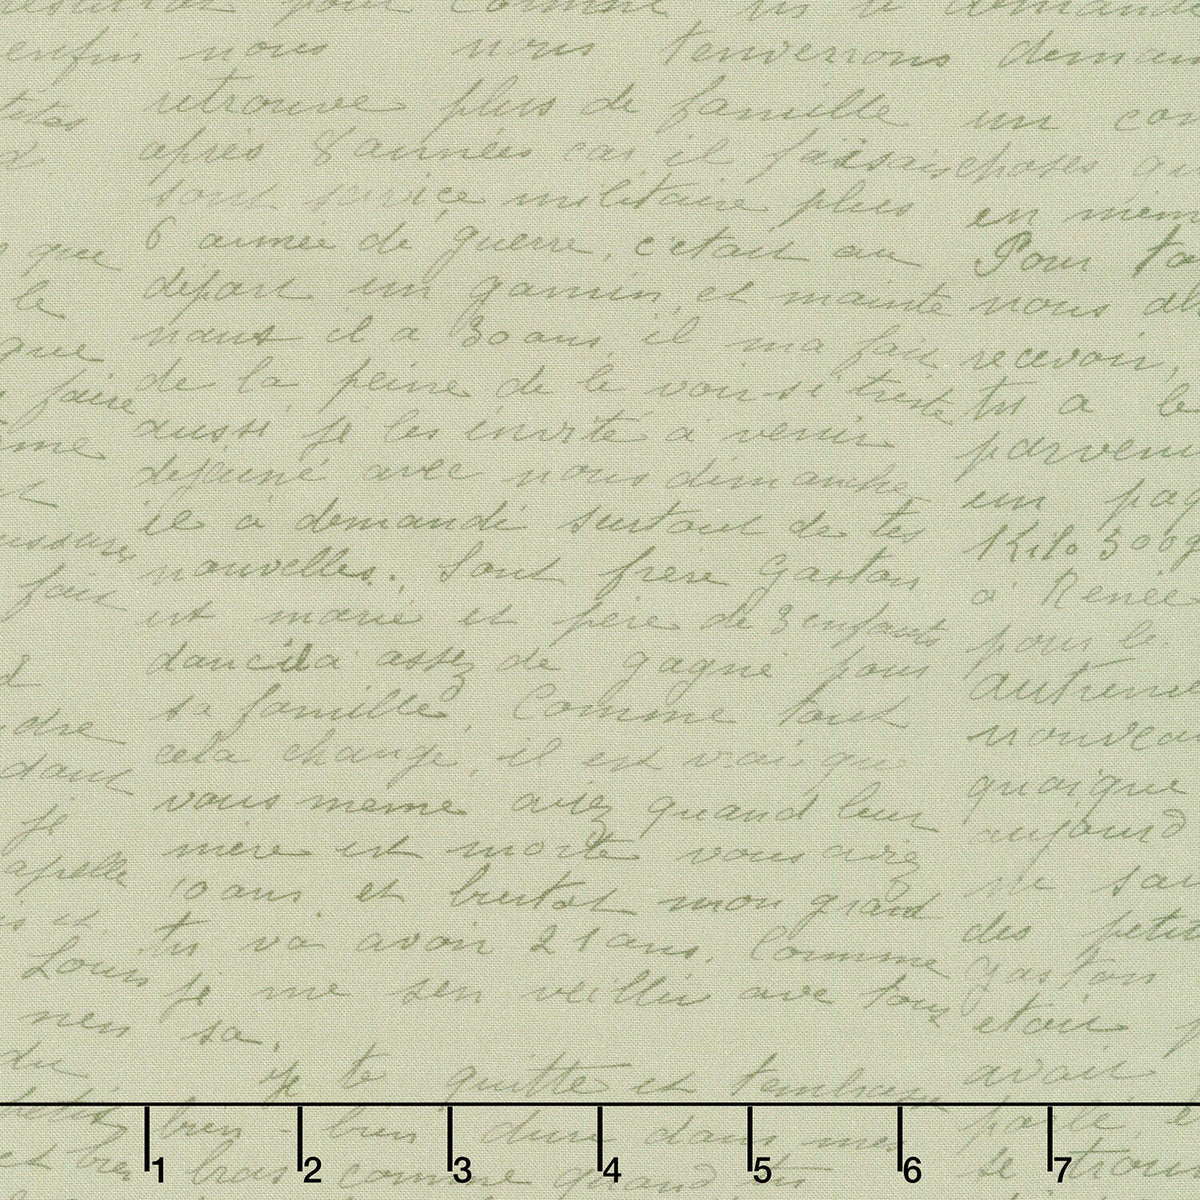 enfin nous nous
retrouve plus de famille
après 8 années car il faisais
sont service militaire plus
6 année de guerre, c'etait au
départ un gamin, et mainte
nant il a 30 ans, il ma fait
de la peine de le voir si triste
aussi je les invité à venir
dejeuné avec nous dimanche,
il à demandé surtout de tes
nouvelles. Sont frère Gaston
est marié et père de 3 enfants
assez de gagné pour
sa famille. Comme tout
cela change, il est vrai que
vous meme aviez quand leur
mère est morte vous aviez
10 ans et bientot mon grand
tu va avoir 21 ans. Comme
je me sen veillir ave tous
sa.
Je te quitte et t'embrasse
bien - bien dure dans mes
bras comme quand tu
que
le
que
faire
fait
dant
je
apelle
Louis
nen
du
petits
et bien
un
choses
en
Pour
nous
recevoir,
tu a le
un
Kilo 300g
à Renée
pour le
quoique
aujourd
ne
des petit
Gaston
etait
avait
parlé
se
1 2 3 4 5 6 7